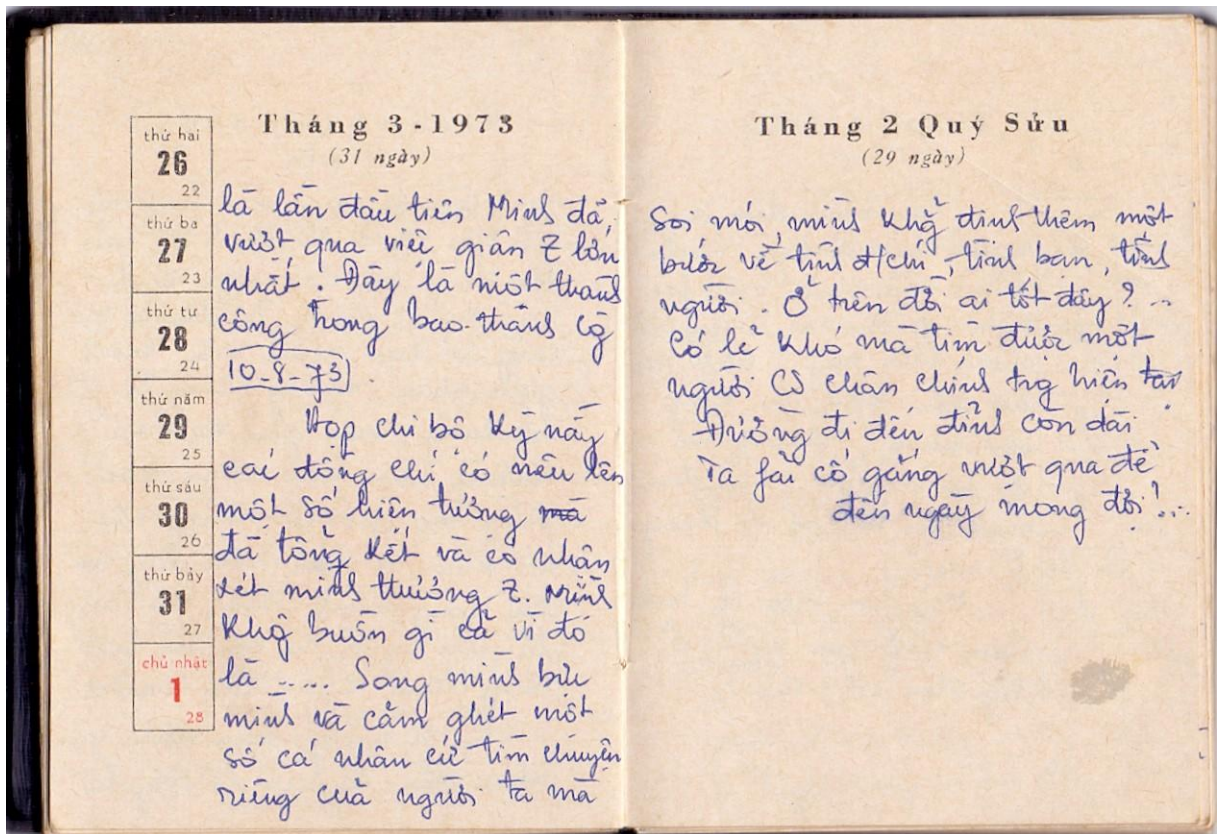 Tháng 3-1973
(31 ngày)
thứ hai
26
22
thứ ba
27
23
thứ tư
28
24
thứ năm
29
25
thứ sáu
30
26
thứ bảy
31
27
chủ nhật
1
28
là lần đầu tiên Minh đã,
vượt qua việc giận Z lớn
nhất. Đây là một thành
công trong bao thành cộ
10-8-73
Họp chi bộ kỳ này
các đồng chí có nêu lên
một số hiện tượng mà
đã tổng kết và có nhận
xét mình thương Z. Mình
Khộ buồn gì cả vì đó
là ..... Song mình bực
mình và căm ghét một
số cá nhân cứ tìm chuyện
riêng của người ta mà
Tháng 2 Quý Sửu
(29 ngày)
Soi mói, mình Khg định thêm một
bước về tình đ/chí, tình bạn, tình
người. Ở trên đời ai tốt đây? ..
Có lẽ khó mà tìm được một
người CS chân chính trg hiện tại
Đường đi đến đỉnh còn dài
Ta fải cố gắng vượt qua để
đến ngày mong đợi!...